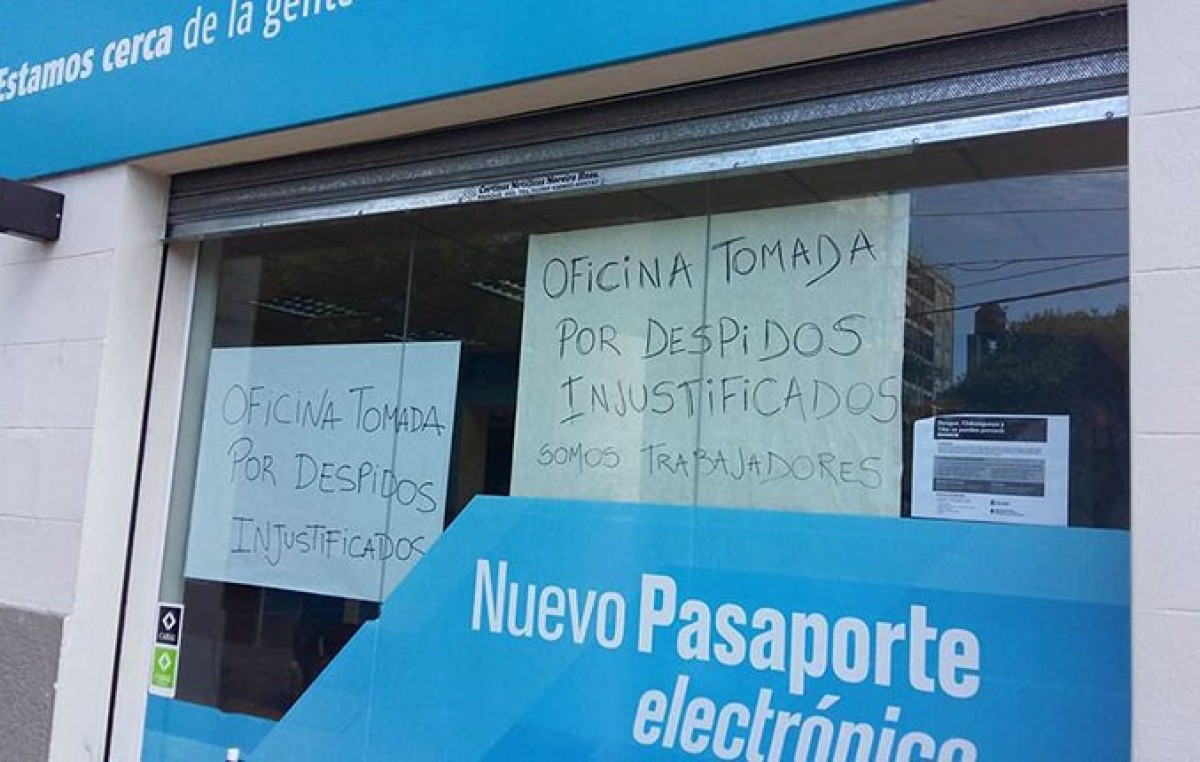 Estamos cerca de la gente
Cortinas Metálicas Moreira Hnos.
OFICINA TOMADA
POR DESPIDOS
INJUSTIFICADOS
SOMOS TRABAJADORES
OFICINA TOMADA
POR DESPIDOS
INJUSTIFICADOS
Dengue, Chikungunya y
Zika se pueden prevenir
Nuevo Pasaporte
electrónico
CABAL